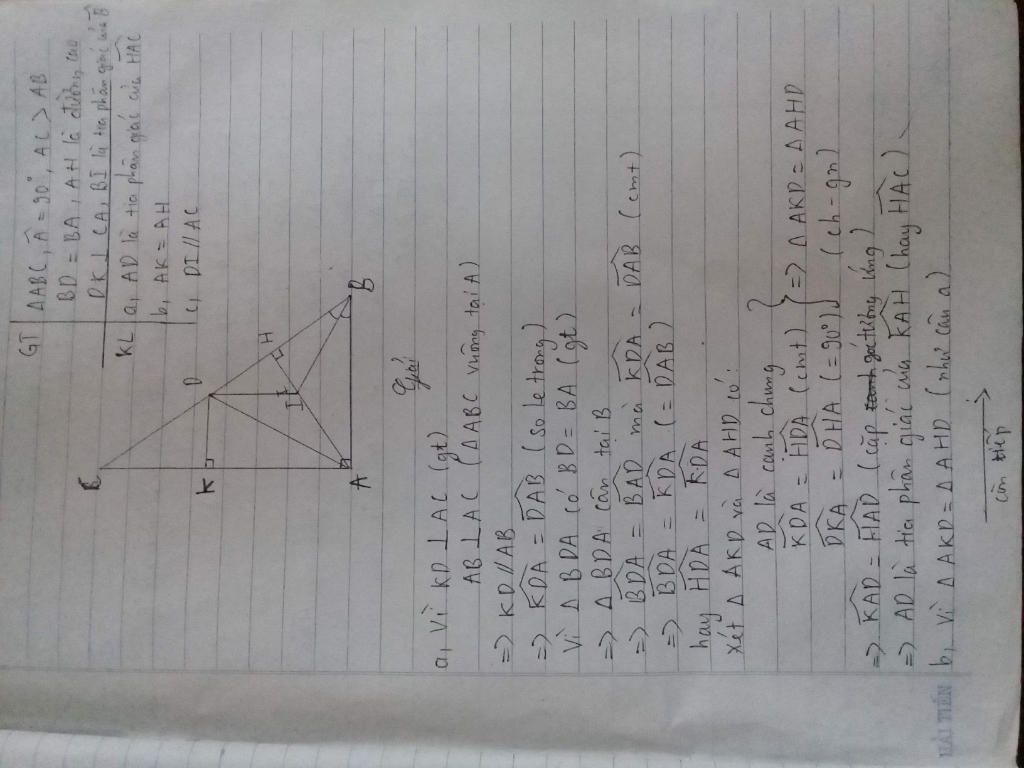 GT
ΔABC, Â = 90°, AC > AB
BD = BA, AH là đường cao
DK ⊥ CA, BI là tia phân giác của B̂
KL
a, AD là tia phân giác của HAC
b, AK = AH
c, DI // AC
C
K
D
H
I
A
B
Giải
a, Vì KD ⊥ AC (gt)
AB ⊥ AC (ΔABC vuông tại A)
=> KD // AB
=> KDA = DAB (so le trong)
Vì Δ BDA có BD = BA (gt)
=> Δ BDA cân tại B
=> BDA = BAD mà KDA = DAB (cmt)
=> BDA = KDA (= DAB)
hay HDA = KDA
Xét Δ AKD và Δ AHD có:
AD là cạnh chung
KDA = HDA (cmt) } => Δ AKD = Δ AHD
DKA = DHA (= 90°) (ch - gn)
=> KAD = HAD (cặp góc tương ứng)
=> AD là tia phân giác của KAH (hay HAC)
b, Vì Δ AKD = Δ AHD (như câu a)
còn tiếp
HẢI TIẾN